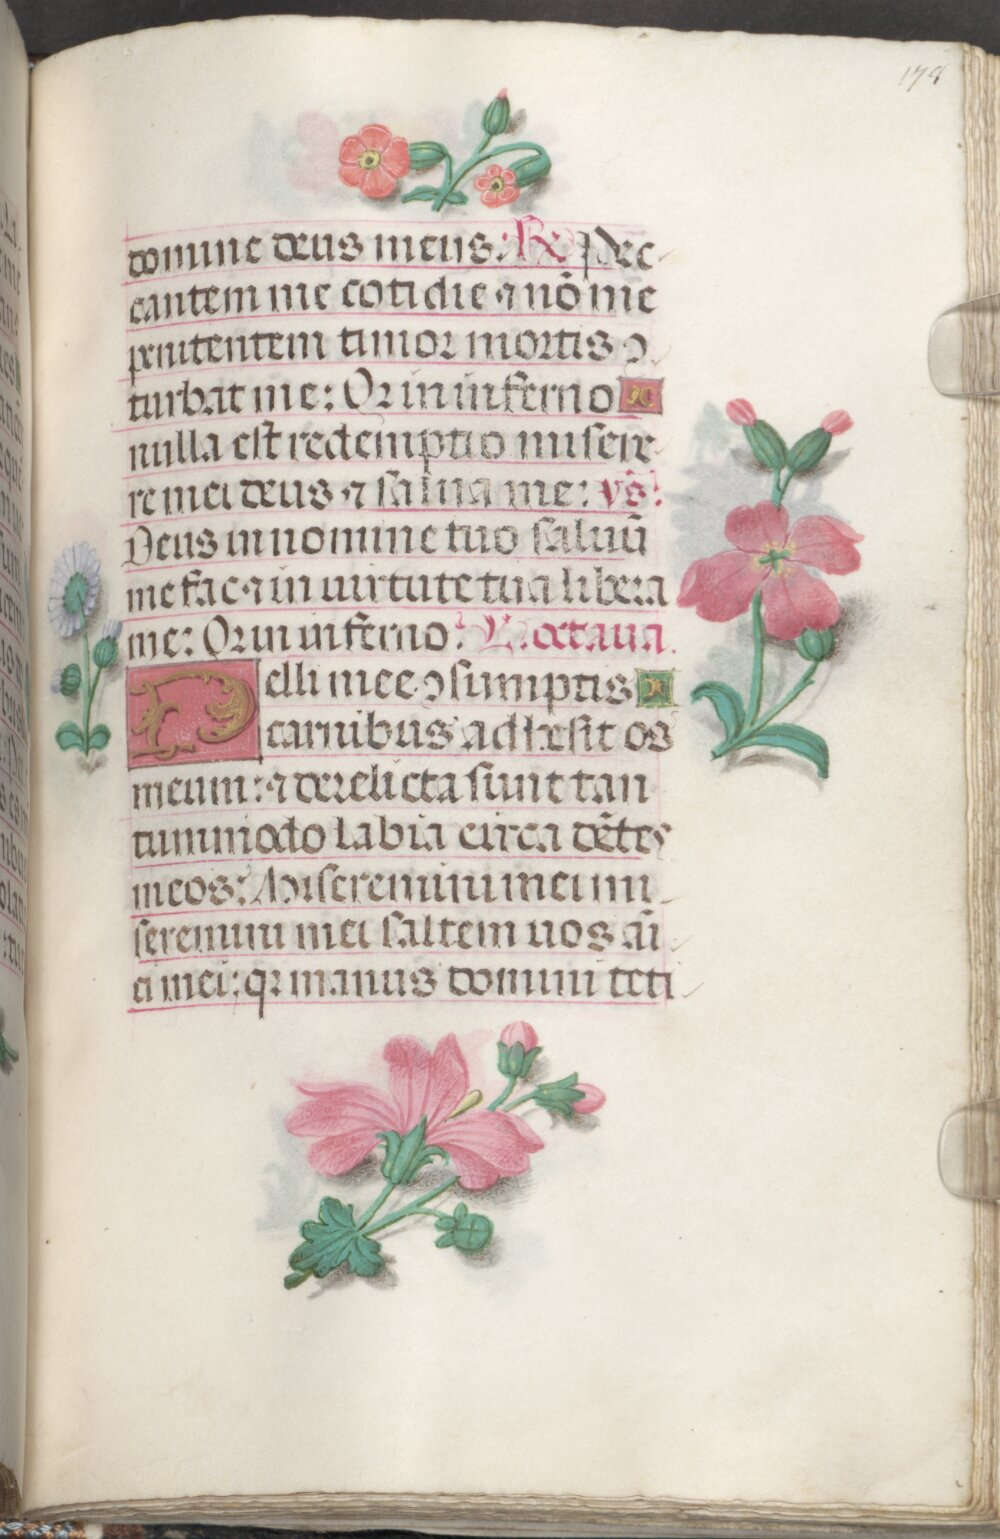 178
domine deus meus: R Pec
cantem me cotidie ⁊ nō me
penitentem timor mortis ↄ
turbat me: Qr in inferno
nulla est redemptio misere
re mei deus ⁊ salua me: vs̄:
Deus in nomine tuo saluū
me fac ⁊ in uirtute tua libera
me: Qr in inferno: L. octaua.
Pelli mee ↄsumptis
carnibus adhesit os
meum: ⁊ derelicta sunt tan
tummodo labia circa dētes
meos: Miseremini mei mi
seremini mei saltem uos am̄
ci mei: qr manus domini teti